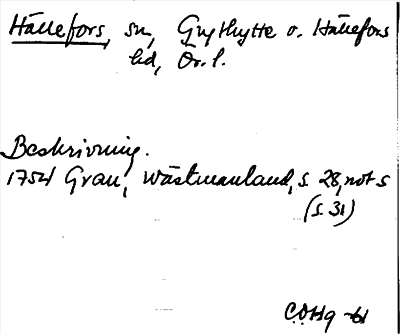 Hällefors, sn, Grythytte o. Hällefors
hd, Ör. l.
Beskrivning.
1754 Grau, Wästmanland, s. 28, not s
(s. 31)
C.O.Hg -61